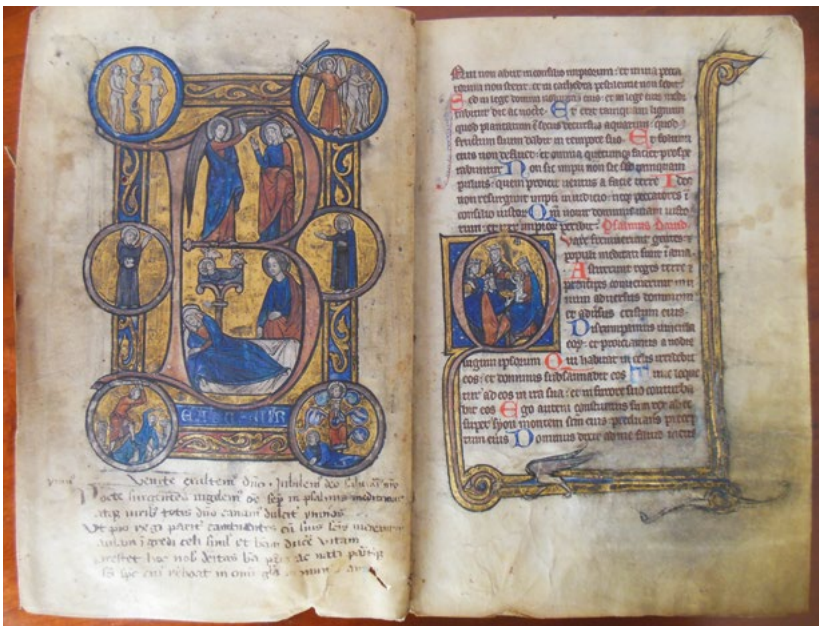 B
EATV VIR
Venite exultem dño Iubilem deo salutari nro
Nocte surgentes vigilem oēs semp in psalmis meditemur
atq; viribz totis dño canam dulcit ymnos
Ut pio regi parit cantantes cū suis scis mereamur
aulam īgredi celi simul et beatam ducē vitam
Prestet hoc nob deitas bta pris ac nati
in omī gla
Qui non abiit in consilio impiorum: et in uia pecca
torum non stetit: et in cathedra pestilentie non sedit.
Sed in lege domini uoluntas eius: et in lege eius medi
tabitur die ac nocte. Et erit tamquam lignum
quod plantatum ē secus decursus aquarum: quod
fructum suum dabit in tempore suo. Et folium
eius non defluet: et omnia quecumque faciet prospe
rabuntur. Non sic impii non sic: sed tamquam
puluis: quem proicit uentus a facie terre. Ideo
non resurgunt impii in iudicio: neque peccatores ī
consilio iustor. Qm nouit dominus uiam iusto
rum: et iter impior peribit. Psalmus dauid.
Quare fremuerunt gentes: et
populi meditati sunt inania.
Astiterunt reges terre et
principes conuenerunt in u
num aduersus dominum
et aduersus cristum eius.
Dirumpamus uincula
eor: et proiciamus a nobis
iugum ipsorum. Qui habitat in celis irridebit
eos: et dominus subsannabit eos. Tunc loque
tur ad eos in ira sua: et in furore suo conturba
bit eos. Ego autem constitutus sum rex ab eo
super syon montem scm eius predicans precep
tum eius. Dominus dixit ad me filius meus